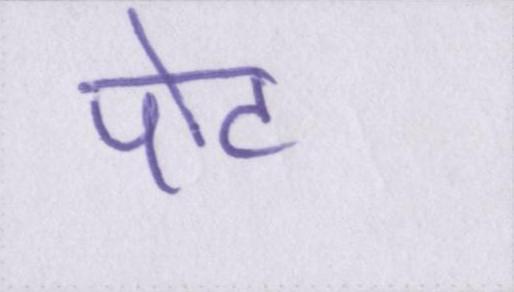 पोट